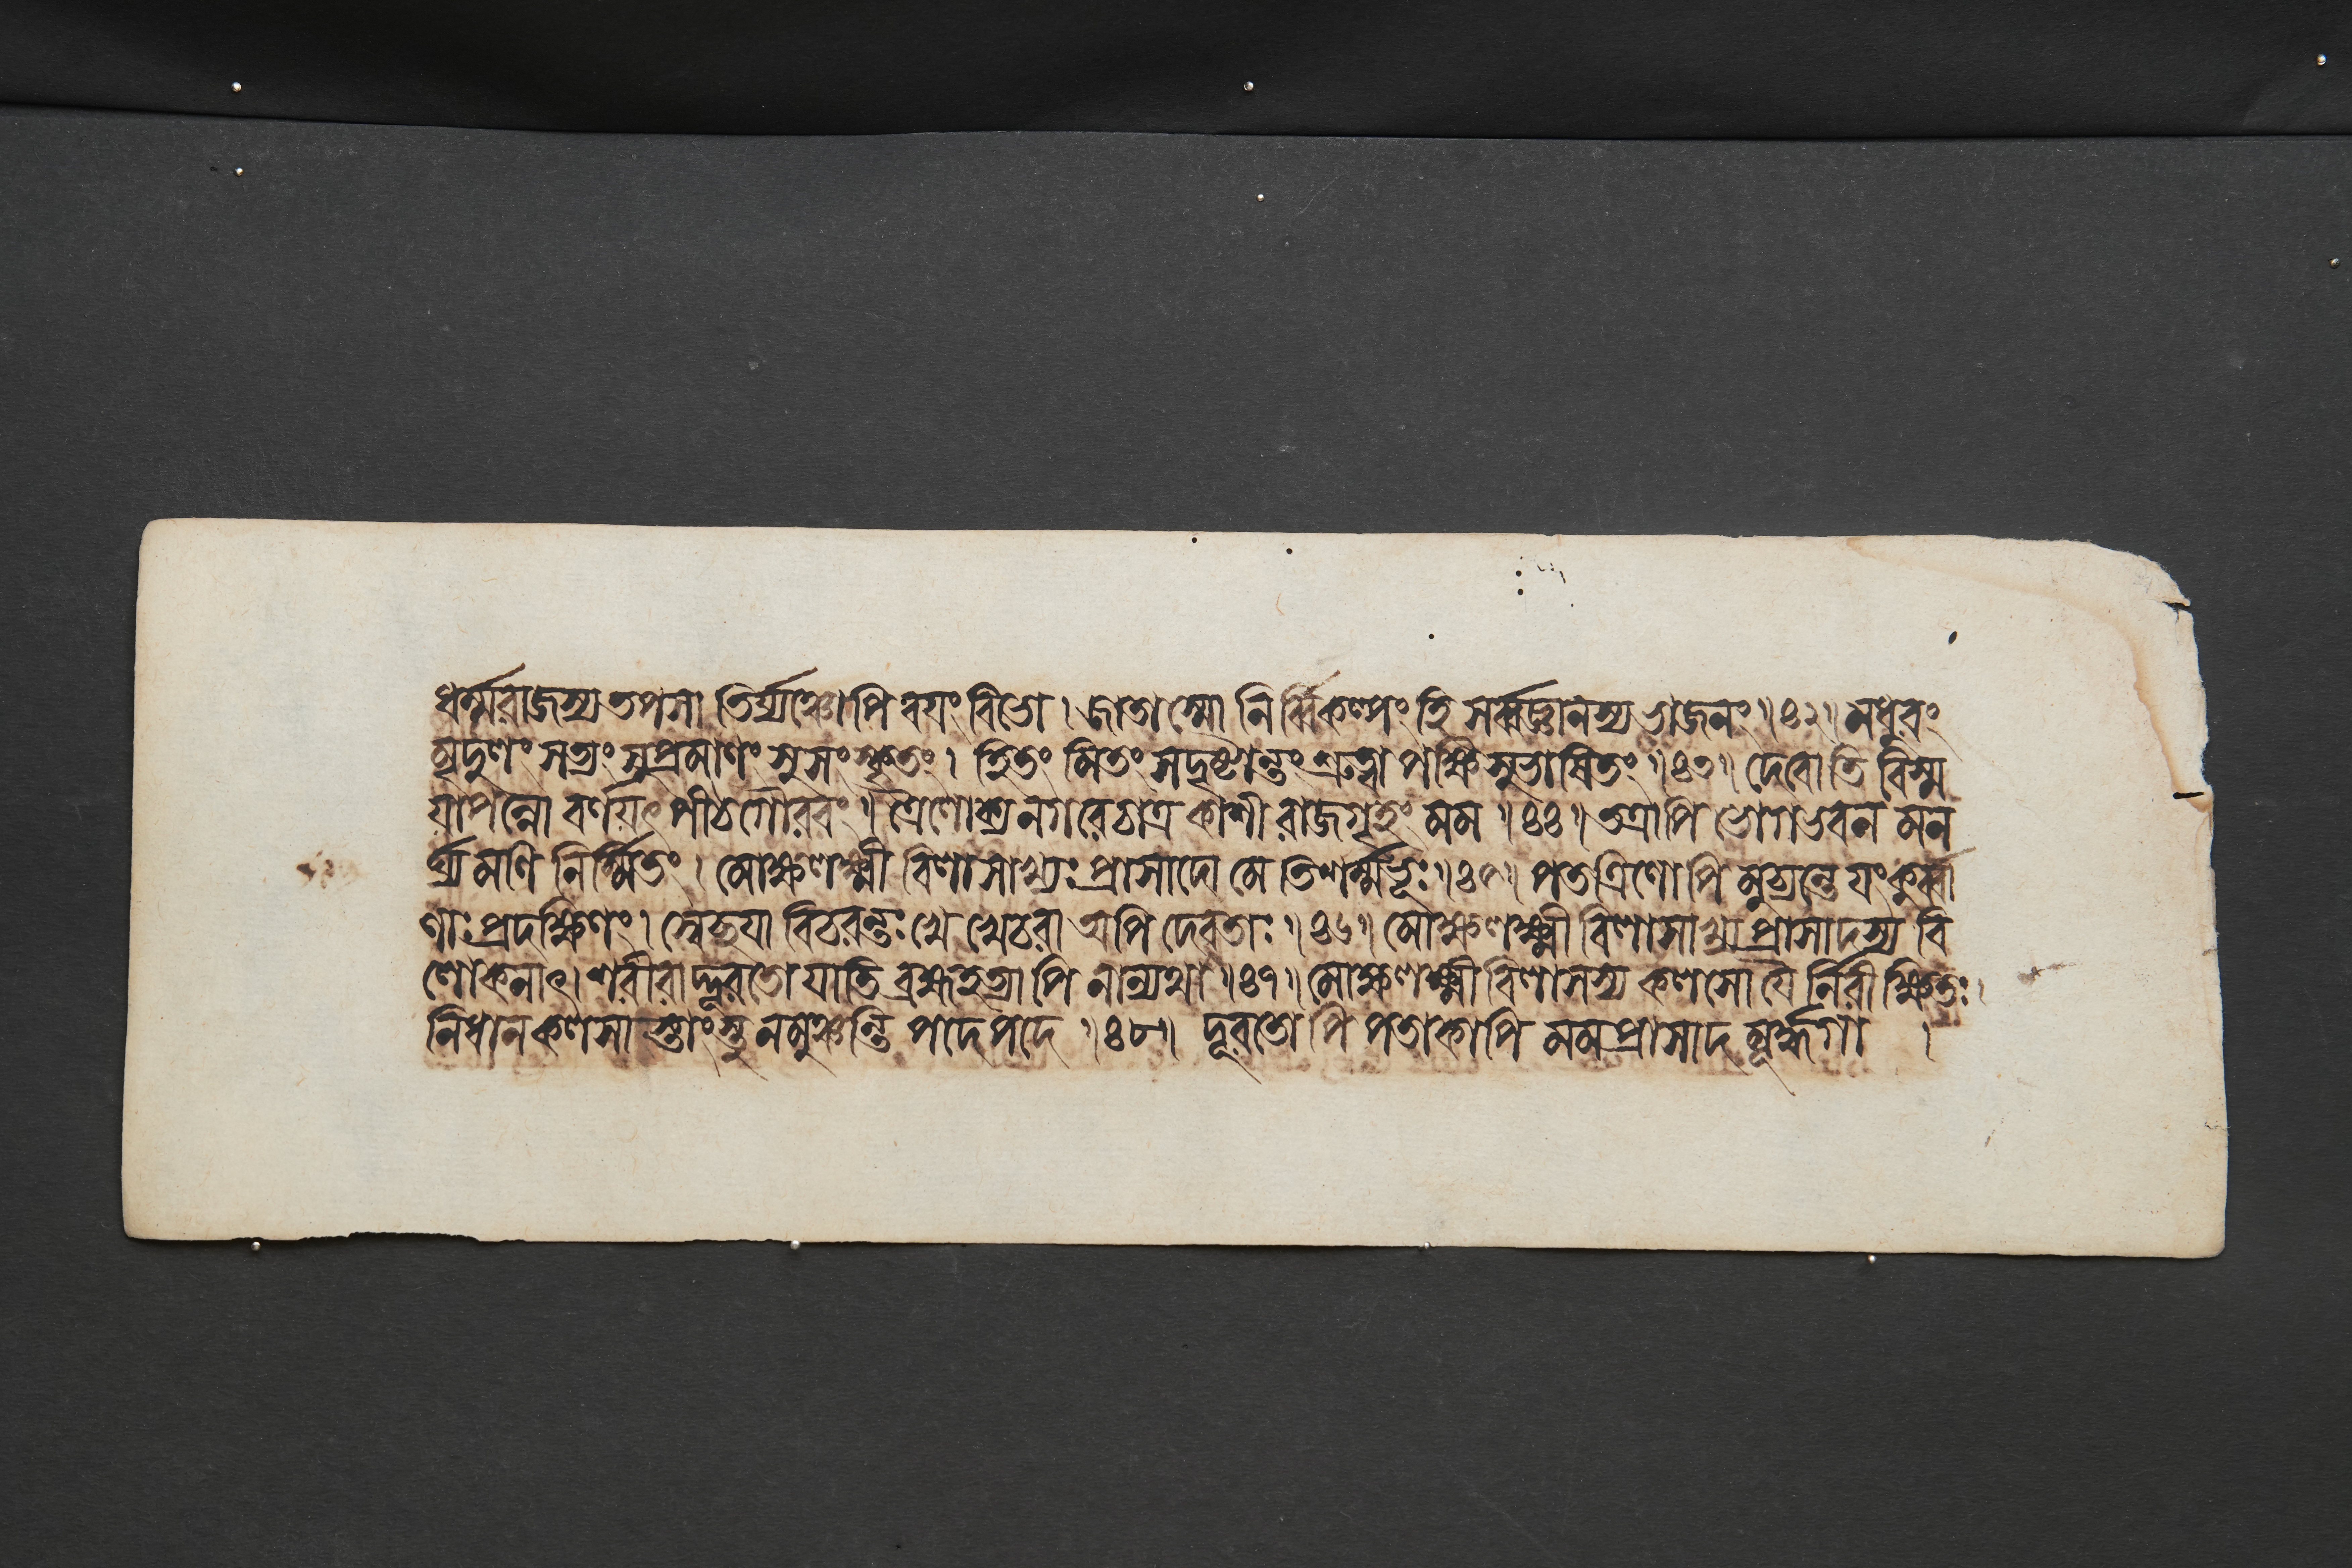 ধর্ম্মরাজস্য তপসা তির্য্যঞ্চোপি বয়ং বিভো । জাতাস্মো নির্ব্বিকল্পং হি সর্ব্বজ্ঞানস্য ভাজনং ॥৪২॥ মধুরং
মৃদুলং সত্যং সুপ্রমাণং সুসংস্কৃতং । হিতং মিতং সদৃষ্টান্তং শ্রুত্বা পক্ষিসুভাষিতং ॥৪৩॥ দেবোতি বিস্ম
য়াপন্নো বর্ণয়ৎ পীঠগৌরবং ॥ ত্রৈলোক্য নগরে চাত্র কাশী রাজগৃহং মম ॥৪৪॥ তত্রাপি ভোগভবন মন
র্ঘ্য মণি নির্ম্মিতং । মোক্ষলক্ষ্মী বিলাসাখ্যঃ প্রাসাদো মে তিশর্ম্মভূঃ ॥৪৫॥ পতত্রিণোপি মুচ্যন্তে যং কুর্ব্বা
ণাঃ প্রদক্ষিণং । স্বেচ্ছয়া বিচরন্তঃ খে খেচরা অপি দেবতাঃ ॥৪৬॥ মোক্ষলক্ষ্মী বিলাসাখ্য প্রাসাদস্য বি
লোকনাৎ । শরীরাদ্দূরতো যাতি ব্রহ্মহত্যাপি নান্যথা ॥৪৭॥ মোক্ষলক্ষ্মী বিলাসস্য কলসো যৈ র্নিরীক্ষিতঃ ।
নিধানকলসা স্তাংস্তু ন মুঞ্চন্তি পদে পদে ॥৪৮॥ দূরতোপি পতাকাপি মম প্রাসাদ মূর্দ্ধগা ।